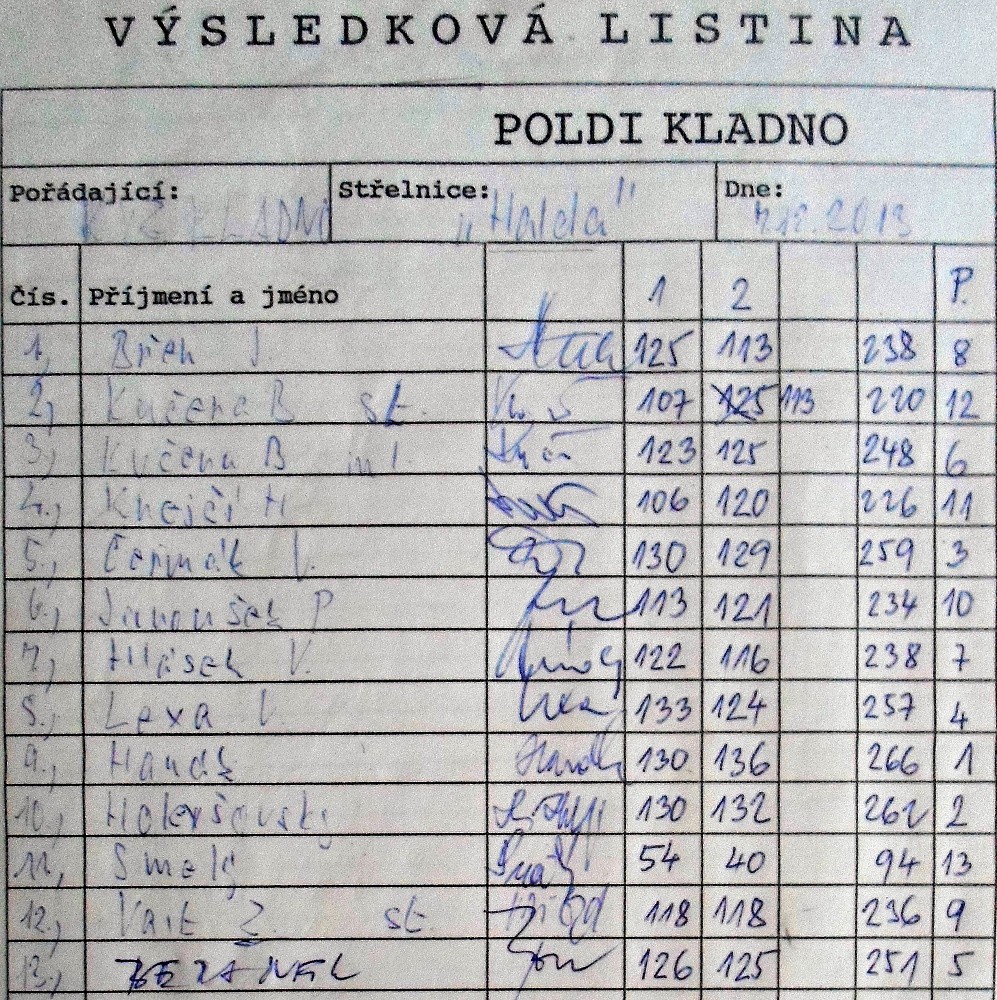 VÝSLEDKOVÁ LISTINA
POLDI KLADNO
Pořádající: KLADNO Střelnice: "Halda" Dne: 7.12.2013
Čís. Příjmení a jméno 1 2 P.
1, Břeh J. 125 113 238 8
2, Kučera B st. 107 125 113 220 12
3., Kučera B ml. 123 125 248 6
4., Krejčí H 106 120 226 11
5., Čermák V. 130 129 259 3
6., Janoušek P 113 121 234 10
7., V. 122 116 238 7
8., Lexa V. 133 124 257 4
9., Handk 130 136 266 1
10., Holeršovský 130 132 262 2
11, Smelý 54 40 94 13
12., Vait Z. st. 118 118 236 9
13., 126 125 251 5